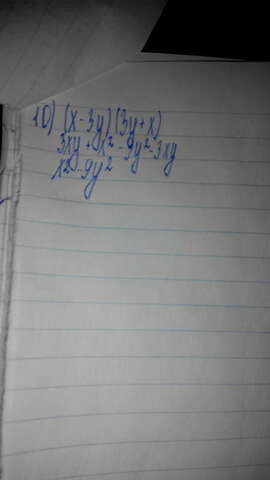 10) (x - 3y)(3y + x)
3xy + x² - 9y² - 3xy
x² - 9y²